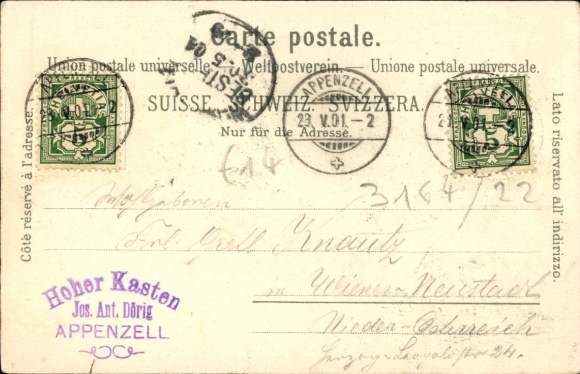 Carte postale.
Union postale universelle. — Weltpostverein. — Unione postale universale.
SUISSE. SCHWEIZ. SVIZZERA.
Nur für die Adresse.
Côte réservé à l'adresse.
Lato riservato all' indirizzo.
HELVETIA
APPENZELL
23.V.01.-2
£14
3164/22
Frl. Knautz
in Wiener-Neustadt
Nieder-Österreich
Herzog-Leopoldstr 24.
Hoher Kasten
Jos. Ant. Dörig
APPENZELL